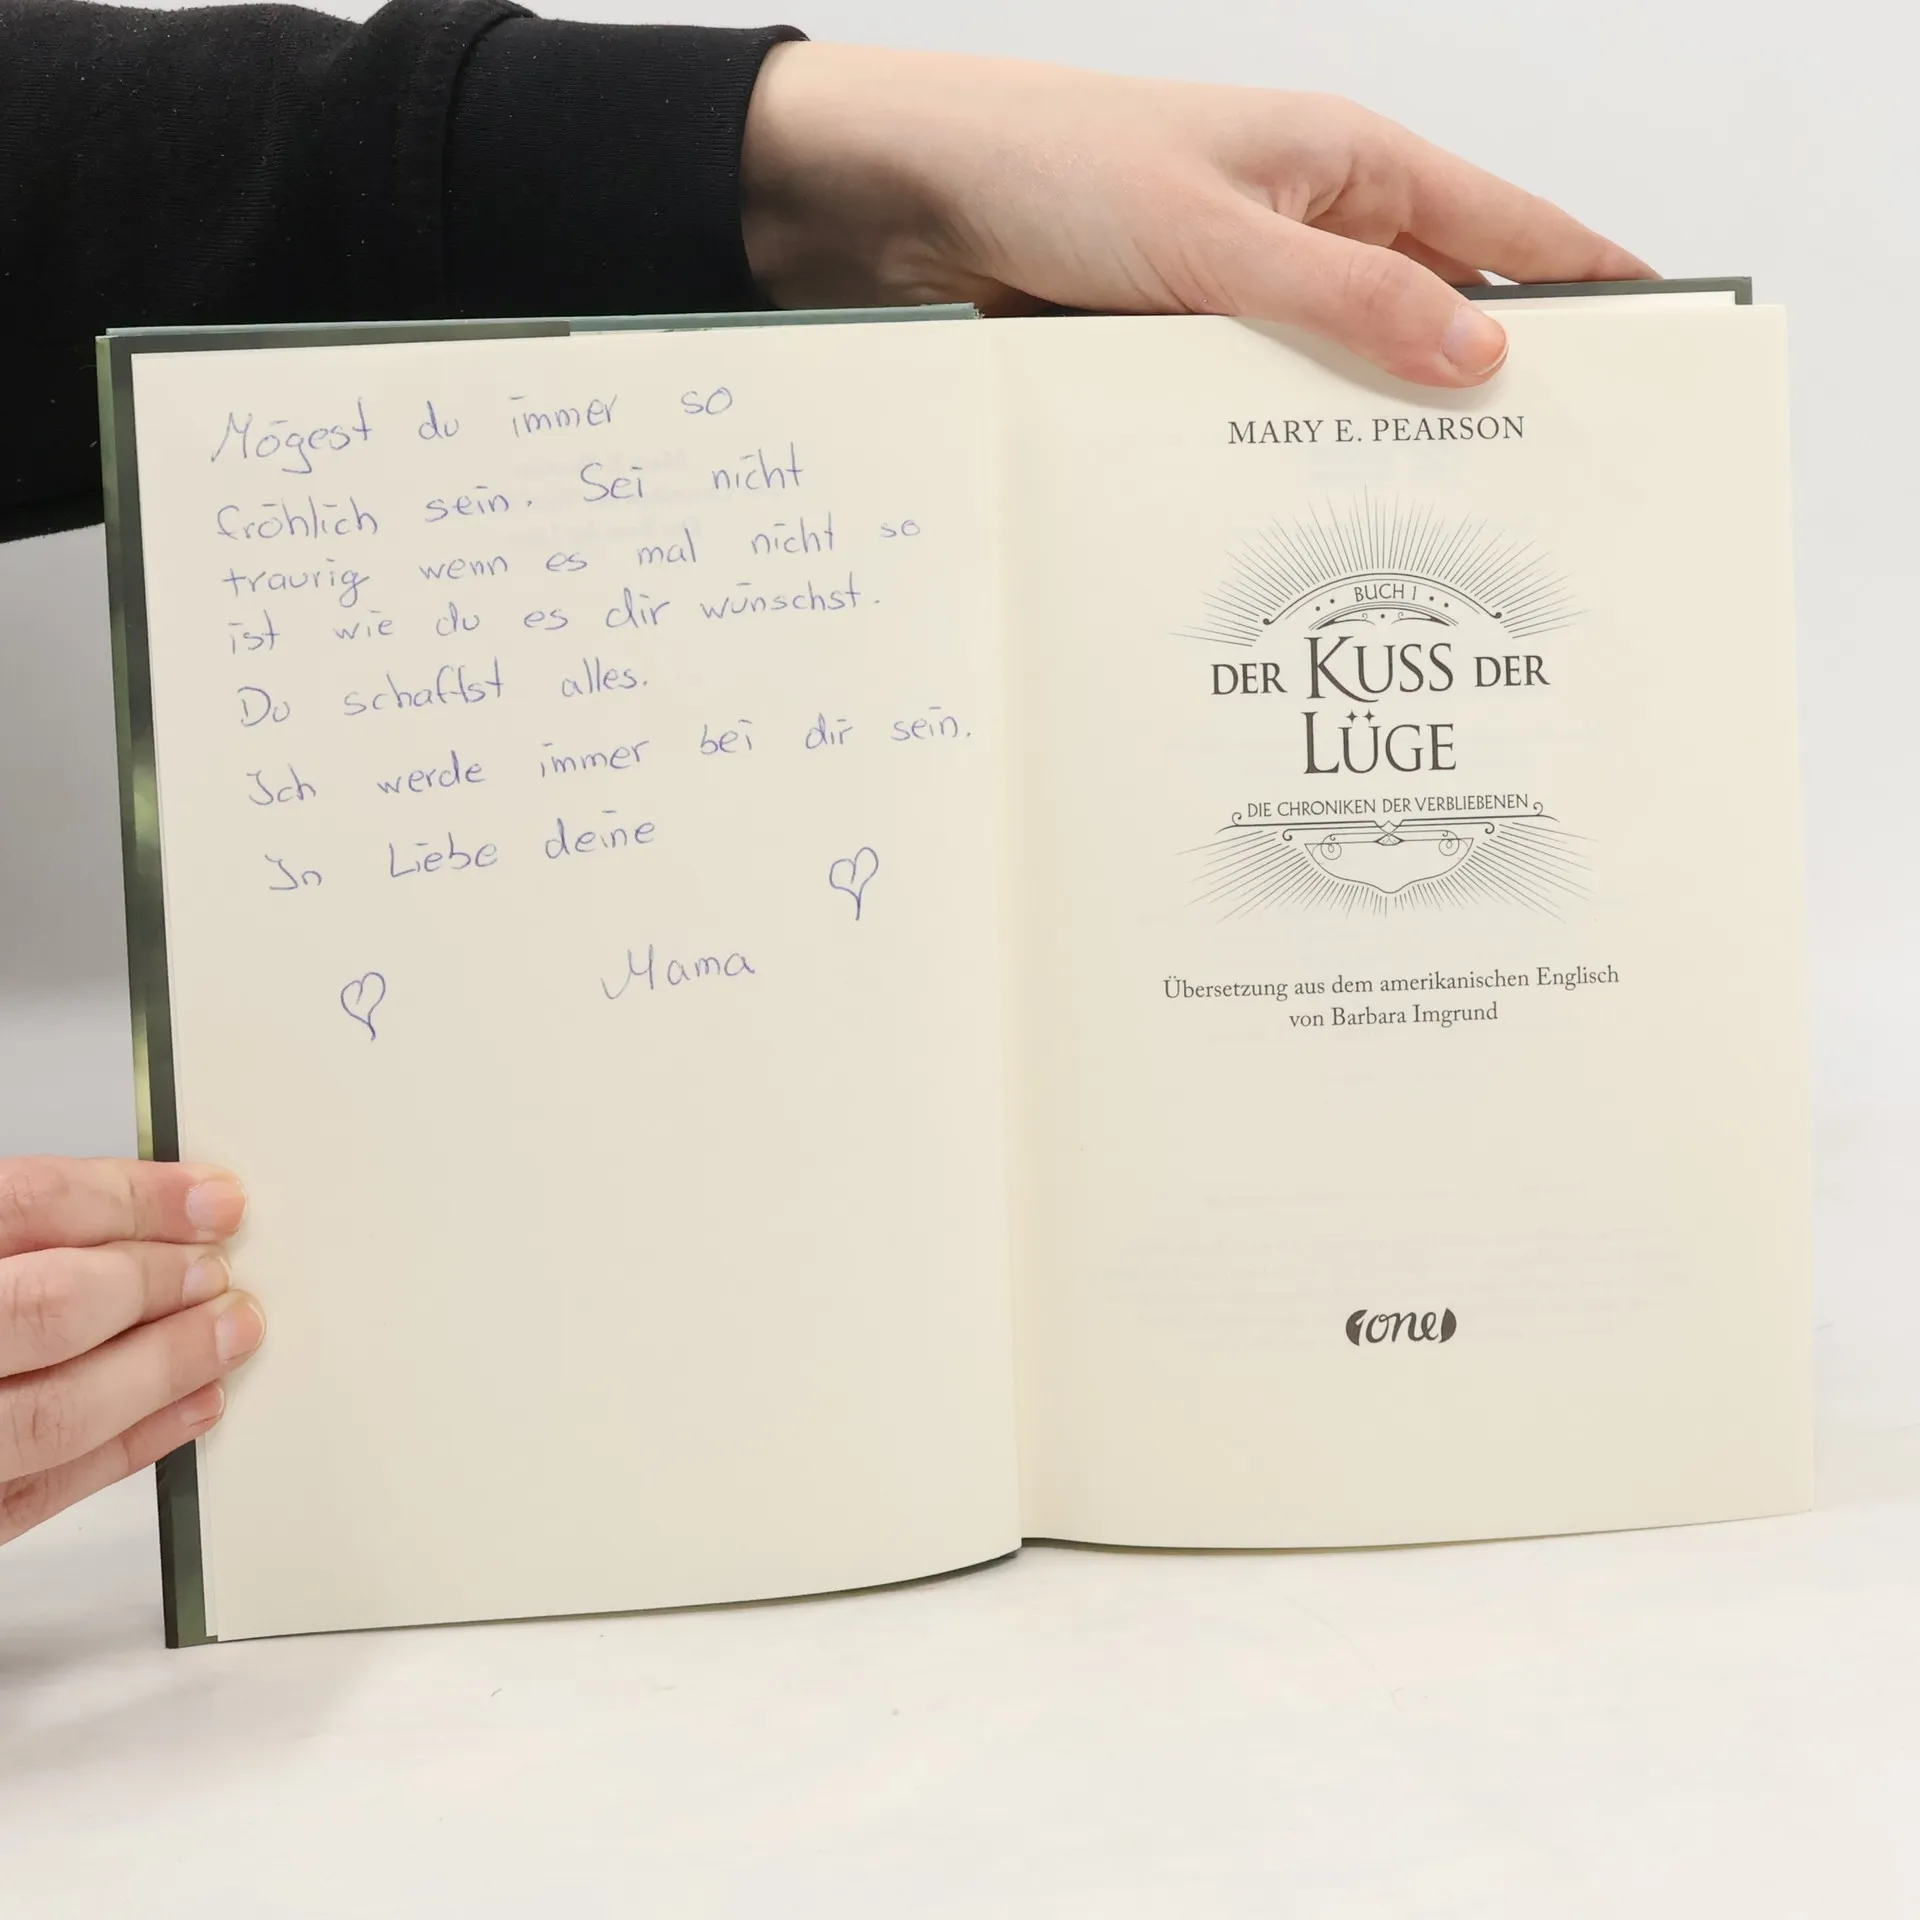 Mögest du immer so
fröhlich sein. Sei nicht
traurig wenn es mal nicht so
ist wie du es dir wünschst.
Du schaffst alles.
Ich werde immer bei dir sein.
In Liebe deine
Mama
MARY E. PEARSON
BUCH 1
DER KUSS DER
LÜGE
DIE CHRONIKEN DER VERBLIEBENEN
Übersetzung aus dem amerikanischen Englisch
von Barbara Imgrund
one